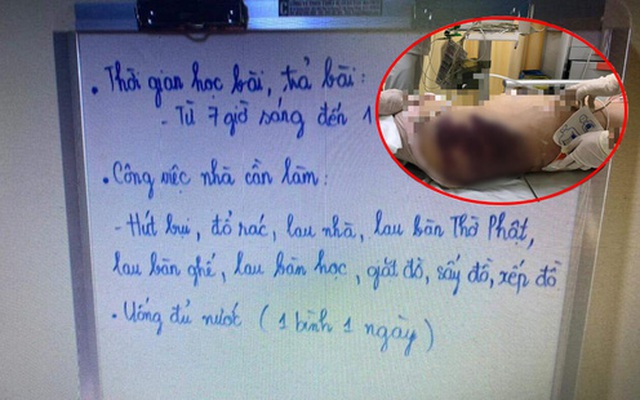 • Thời gian học bài, trả bài:
- Từ 7 giờ sáng đến 1
• Công việc nhà cần làm:
- Hút bụi, đổ rác, lau nhà, lau bàn Thờ Phật,
lau bàn ghế, lau bàn học, giặt đồ, sấy đồ, xếp đồ
• Uống đủ nước (1 bình 1 ngày)